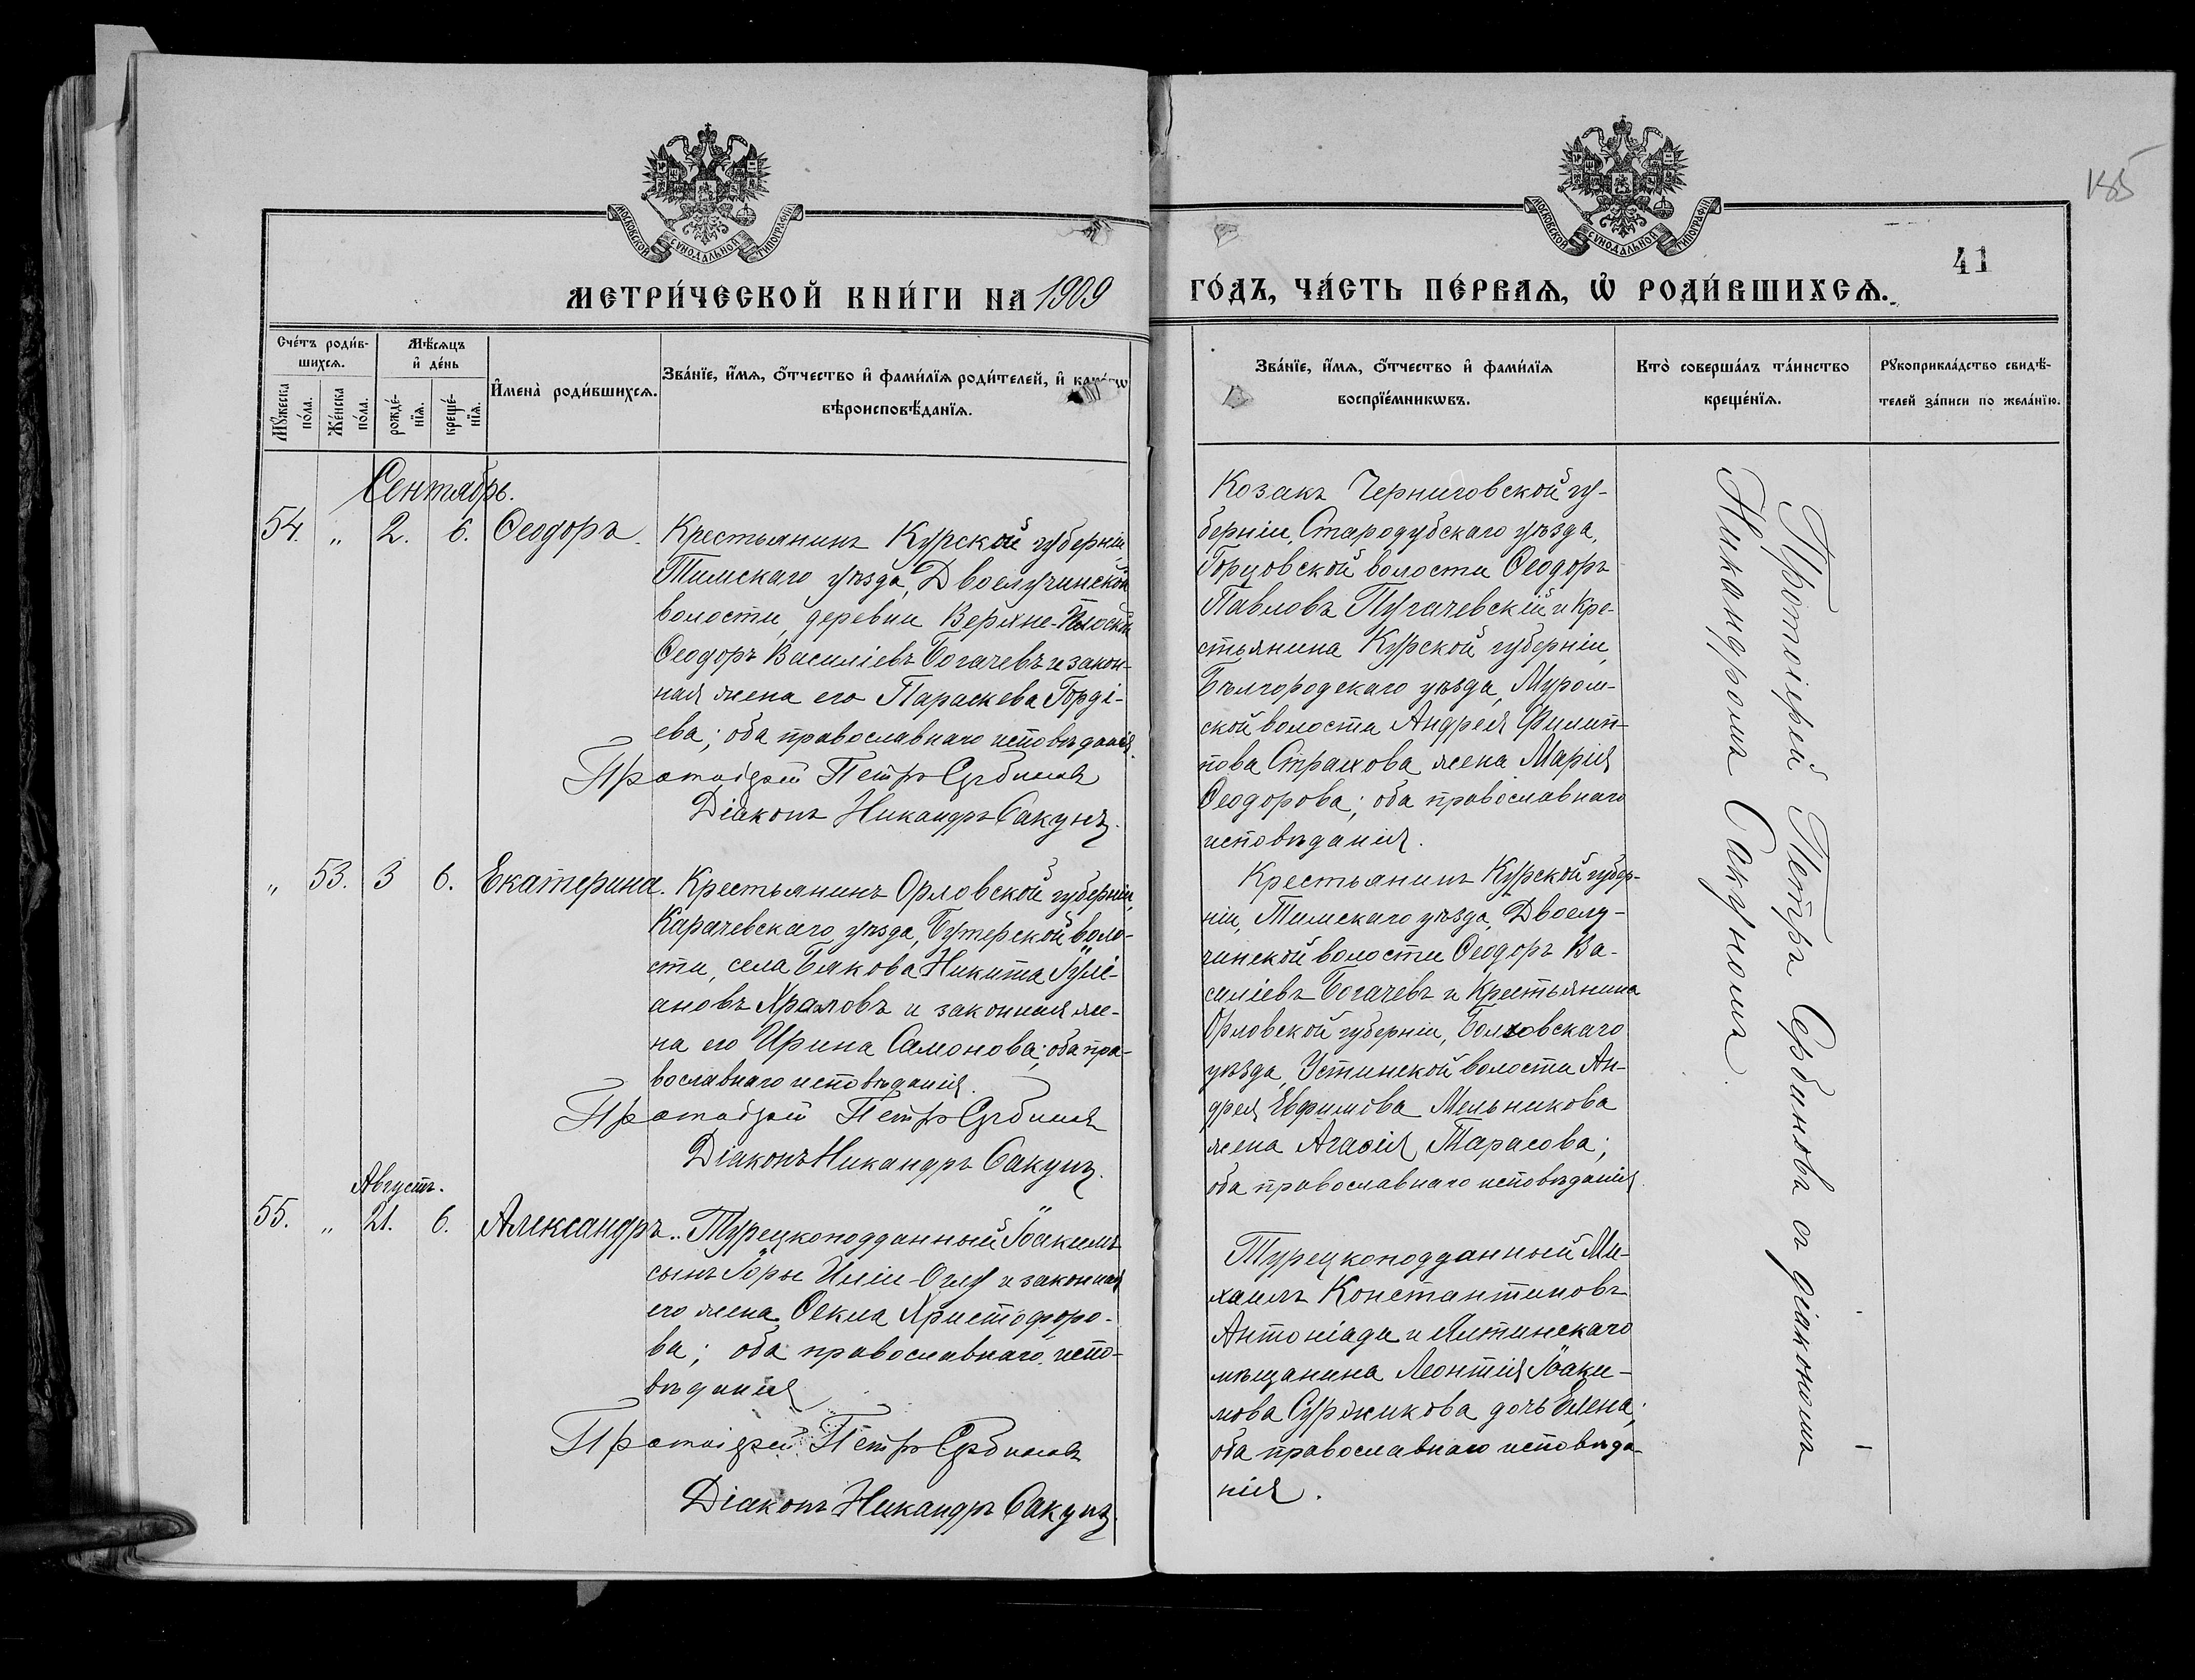 185
41
МОСКОВСКОЙ СУНОДАЛЬНОЙ ТИПОГРАФІИ
МОСКОВСКОЙ СУНОДАЛЬНОЙ ТИПОГРАФІИ
МЕТРИ́ЧЕСКОЙ КНИ́ГИ НА 1909
ГО́ДЪ, ЧА́СТЬ ПЕ́РВАѦ, Ѡ҆ РОДИ́ВШИХСѦ.
Сче́тъ роди́в-
шихсѧ.
Мꙋ́жеска по́ла.
Же́нска по́ла.
Мѣ́сѧцъ
и҆ де́нь
рожде́-
нїѧ.
креще́-
нїѧ.
И҆мена̀ роди́вшихсѧ.
Зва́нїе, и҆́мѧ, ѻ҆́тчество и҆ фами́лїѧ роди́телей, и҆ како́гѡ
вѣроисповѣ́данїѧ.
Зва́нїе, и҆́мѧ, ѻ҆́тчество и҆ фами́лїѧ
воспрїе́мникѡвъ.
Кто̀ соверша́лъ та́инство
креще́нїѧ.
Рꙋкоприкла́дство свидѣ́-
телей за́писи по жела́нїю.
Сентябрь.
54. „ 2. 6. Ѳеодоръ.
Крестьянинъ Курской губерніи
Тимскаго уѣзда, Двоелучинской
волости, деревни Верхне-Плоской
Ѳеодоръ Василіевъ Богачевъ и закон-
ная жена его Параскева Горді-
ева; оба православнаго исповѣданія.
Протоіерей Петръ Сербиновъ
Діаконъ Никандръ Сакунъ.
Козакъ Черниговской гу-
берніи, Стародубскаго уѣзда,
волости Ѳеодоръ
Павловъ Пугачевскій и кре-
стьянина Курской губерніи,
Бѣлгородскаго уѣзда, Муром-
ской волости Андрея Филип-
пова Страхова жена Марія
Ѳеодорова; оба православнаго
исповѣданія.
„ 53. 3 6. Екатерина.
Крестьянинъ Орловской губерніи,
Карачевскаго уѣзда, Бутерской воло-
сти, села Бякова Никита Іулі-
ановъ Храмовъ и законная же-
на его Ирина Самонова; оба пра-
вославнаго исповѣданія.
Протоіерей Петръ Сербиновъ
Діаконъ Никандръ Сакунъ.
Крестьянинъ Курской губер-
ніи, Тимскаго уѣзда, Двоелу-
чинской волости Ѳеодоръ Ва-
силіевъ Богачевъ и крестьянина
Орловской губерніи, Болховскаго
уѣзда, Устинской волости Ан-
дрея Евфимова Мельникова
жена Агаѳія Тарасова;
оба православнаго исповѣданія.
Августъ.
55. „ 21. 6. Александръ.
Турецкоподданный Іоакимъ
сынъ Іоры -Оглу и законная
его жена Ѳекла Христофоро-
ва; оба православнаго испо-
вѣданія
Протоіерей Петръ Сербиновъ
Діаконъ Никандръ Сакунъ.
Турецкоподданный Ми-
хаилъ Константиновъ
Антоніади и Ялтинскаго
мѣщанина Леонтія Іоаки-
мова Суржикова дочь Елена;
оба православнаго исповѣда-
нія.
Протоіерей Петръ Сербиновъ съ діакономъ
Никандромъ Сакуномъ.